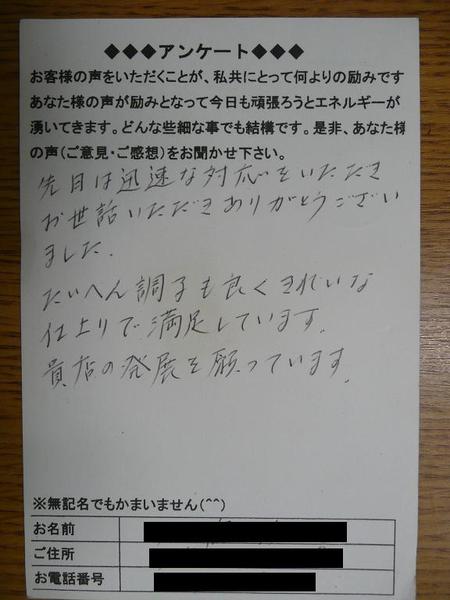 ◆◆◆アンケート◆◆◆
お客様の声をいただくことが、私共にとって何よりの励みです
あなた様の声が励みとなって今日も頑張ろうとエネルギーが
湧いてきます。どんな些細な事でも結構です。是非、あなた様
の声(ご意見・ご感想)をお聞かせ下さい。
先日は迅速な対応をいただき
お世話いただきありがとうござい
ました.
たいへん調子も良くきれいな
仕上りで満足しています.
貴店の発展を願っています.
※無記名でもかまいません(^^)
お名前
ご住所
お電話番号